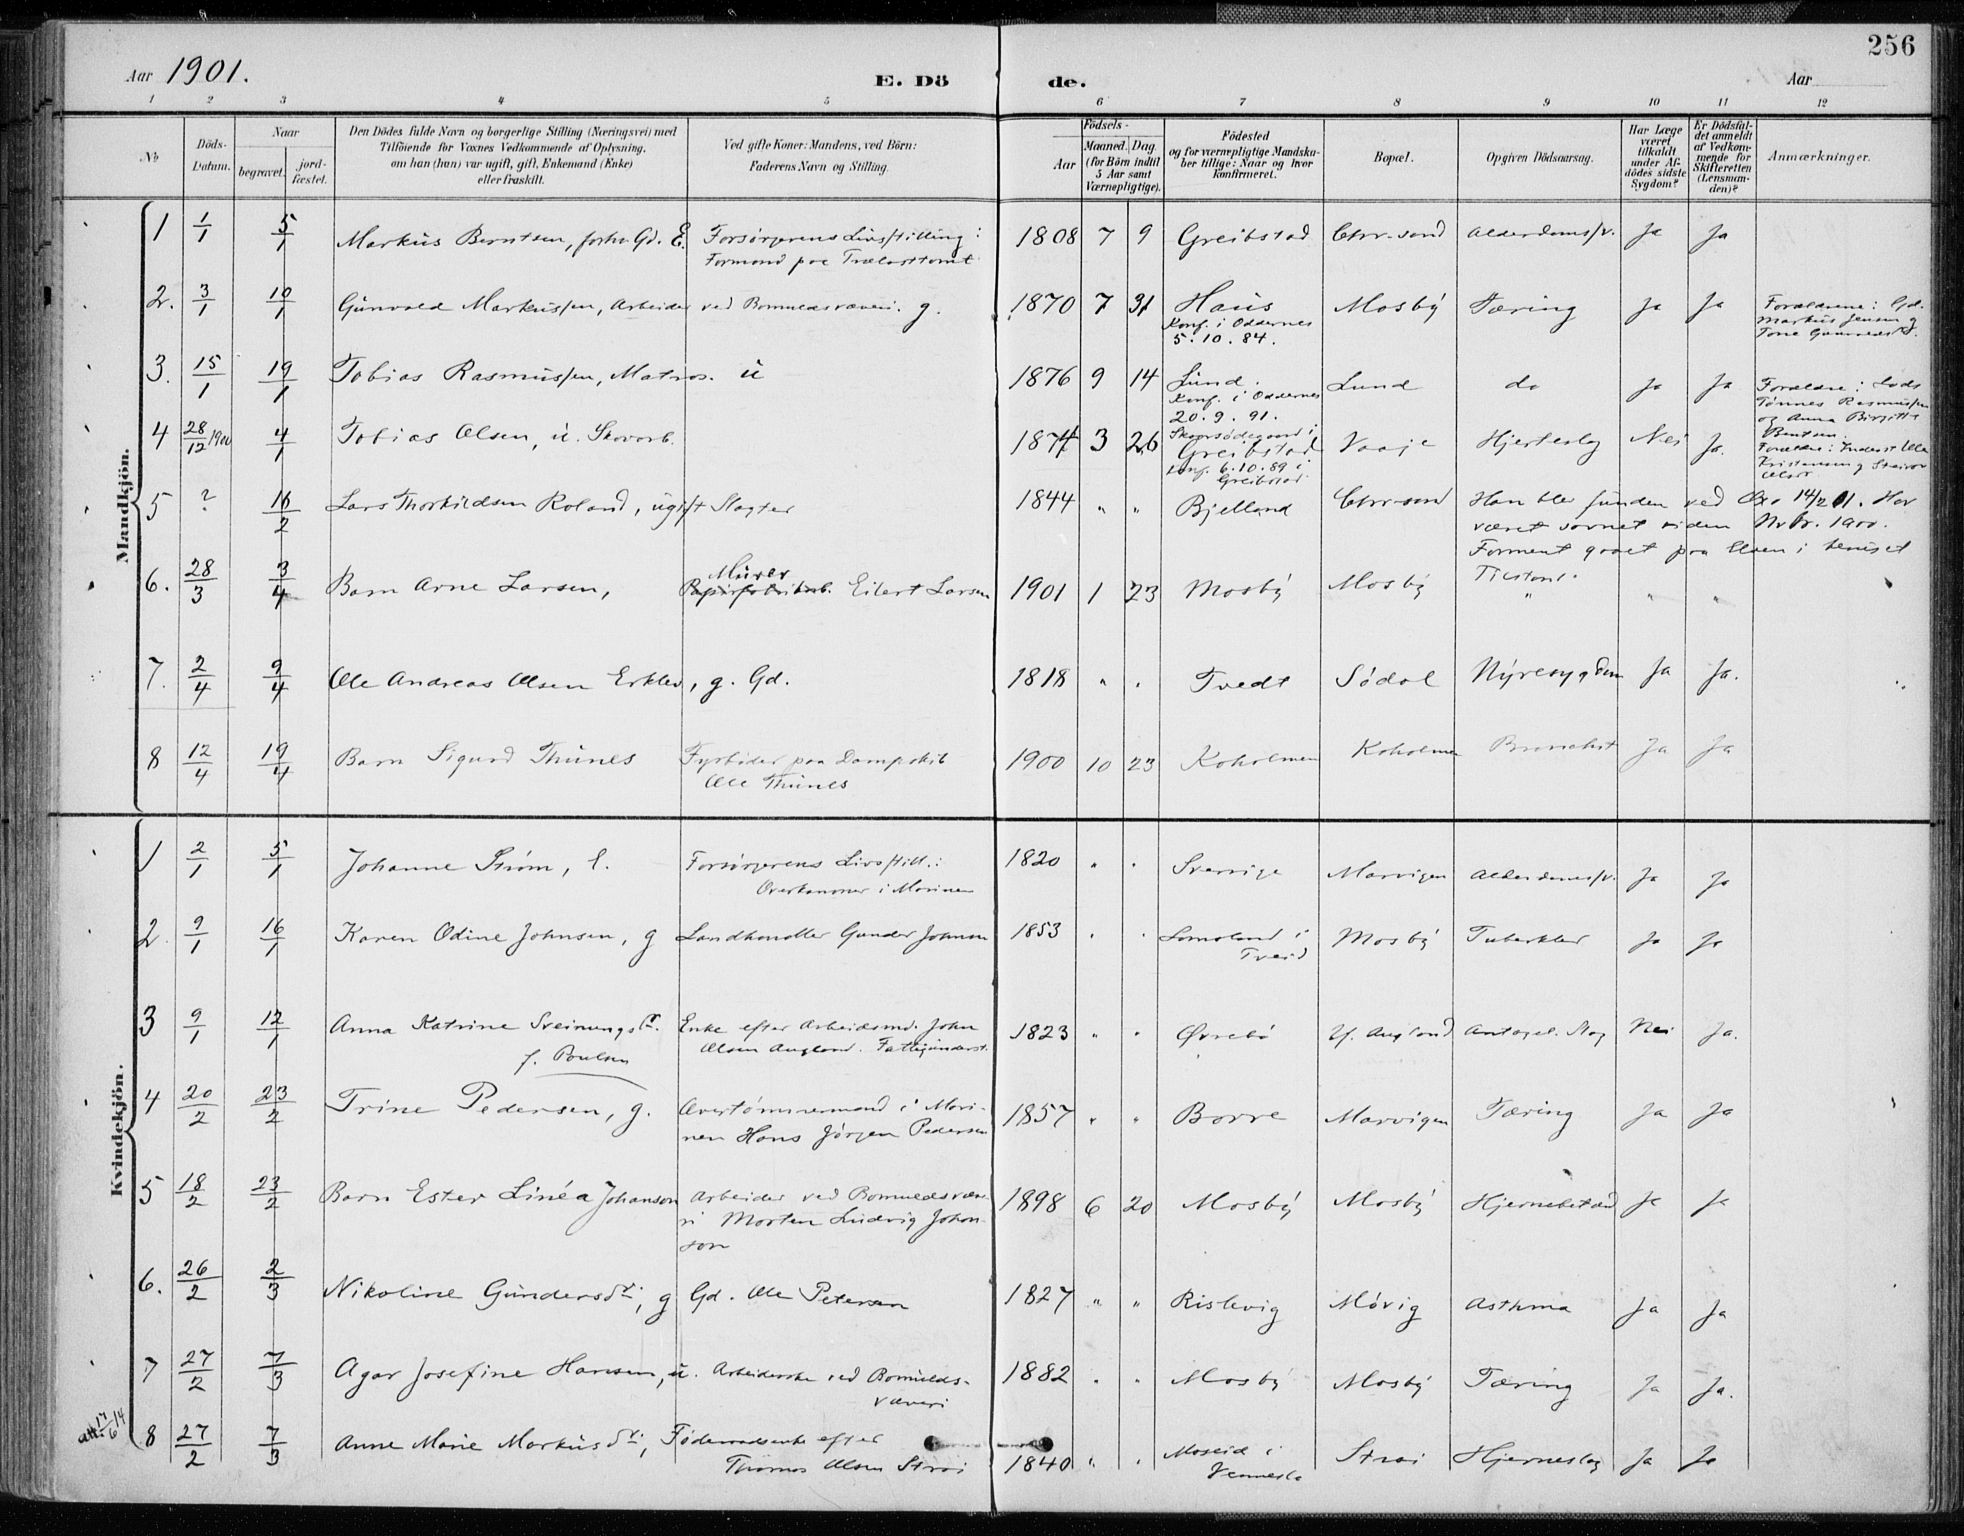 256
Aar 1901. E. Dö de. Aar
1 2 3 4 5 6 7 8 9 10 11 12
№ Döds-Datum. Naar begravet. jord-fæstet. Den Dödes fulde Navn og borgerlige Stilling (Næringsvei) med Tilföiende for Voxnes Vedkommende af Oplysning, om han (hun) var ugift, gift, Enkemand (Enke) eller fraskilt. Ved gifte Koner: Mandens, ved Börn: Faderens Navn og Stilling. Födsels- Aar Maaned. Dag. (for Börn indtil 5 Aar samt Værnepligtige). Födested og for værnepligtige Mandskaber tillige: Naar og hvor konfirmeret. Bopæl. Opgiven Dödsaarsag. Har Læge været tilkaldt under Afdödes sidste Sygdom? Er Dödsfaldet anmeldt af Vedkommende for Skifteretten (Lensmanden)? Anmærkninger.
Mandkjön.
1 1/1 5/1 Markus Berntsen, forhv. Gd. E. Forsørgerens Livsstilling: 1808 7 9 Greibstad Chr-sand Alderdomssv. Ja Ja
Formand paa Trælasttomt
2. 3/1 10/1 Gunvald Markussen, Arbeider ved Bomuldsvæveri. g. 1870 7 31 Haus Mosby Tæring Ja Ja Forældrene: Gd.
Konf. i Oddernes Markus Jensen og
5.10.84. Tone Gunvaldsd.
3. 15/1 19/1 Tobias Rasmussen, Matros. u 1876 9 14 Lund. Lund do Ja Ja Forældre: Lods
Konf. i Oddernes Tønnes Rasmussen
20.9.91. og Anna Birgitte
Bentsen.
4 28/12 1900 4/1 Tobias Olsen, u. Skovarb. 1874 3 26 Skaarsödegaard i Vaaje Hjerteslag Nei Ja. Forældre: Inderst Ole
Greibstad Kristensen og
Konf. 6.10.89 i
Greibstad
5 ? 16/2 Lars Thorkildsen Roland, ugift Slagter 1844 " " Bjelland Chr-sand Han blev funden ved Øxø 14/2 01. Har
været savnet siden Nvbr. 1900.
Forment gaaet paa Elven i beruset
Tilstand.
6. 28/3 3/4 Barn Arne Larsen, Murer Eilert Larsen 1901 1 23 Mosby Mosby " " "
7. 2/4 9/4 Ole Andreas Olsen Erklev, g. Gd. 1818 " " Tvedt Södal Nyresygdom Ja Ja.
8 12/4 19/4 Barn Sigurd Thunes Fyrbøder paa Dampskib 1900 10 23 Koholmen Koholmen Bronchit Ja Ja
Ole Thunes
Kvindekjön.
1 2/1 5/1 Johanne Strøm, E. Forsørgerens Livsstill.: 1820 " " Sverrige Marvigen Alderdomssv. Ja Ja
Overkanoner i Marinen
2. 9/1 16/1 Karen Odine Johnsen, g Landhandler Gunder Johnsen 1853 " " Lomeland i Mosby Tuberkler Ja Ja
Tveid
3 9/1 12/1 Anna Katrine Sveinungsdr. Enke efter Arbeidsmd. John 1823 " " Øvrebö Y. Augland Antagel. Slag Nei Ja.
f. Poulsen Olsen Augland. Fattigunderst.
4 20/2 23/2 Trine Pedersen, g. Overtømmermand i Mari- 1857 " " Borre Marvigen Tæring Ja Ja
nen Hans Jørgen Pedersen
5 18/2 23/2 Barn Ester Linéa Johanson Arbeider ved Bomuldsvæve- 1898 6 20 Mosby Mosby Hjernebetænd Ja Ja
ri Morten Ludvig Johan-
son
6. 26/2 2/3 Nikoline Gundersdr., g Gd. Ole Petersen 1827 " " Rislevig Møvig Asthma Ja Ja
7 27/2 7/3 Agar Josefine Hansen, u. Arbeiderske ved Bomulds- 1882 " " Mosby Mosby Tæring Ja Ja.
væveri
att. 17/6 14 8 27/2 7/3 Anne Marie Markusdr., Føderaadsenke efter 1840 " " Moseid i Strai Hjerneslag Ja Ja
Thomas Olsen Strai Vennesla